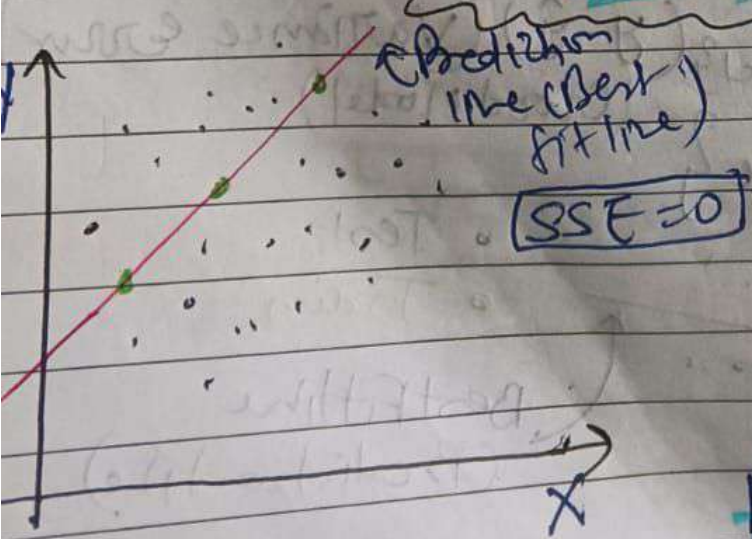 Y
Prediction
line (Best
fit line)
SSE=0
X